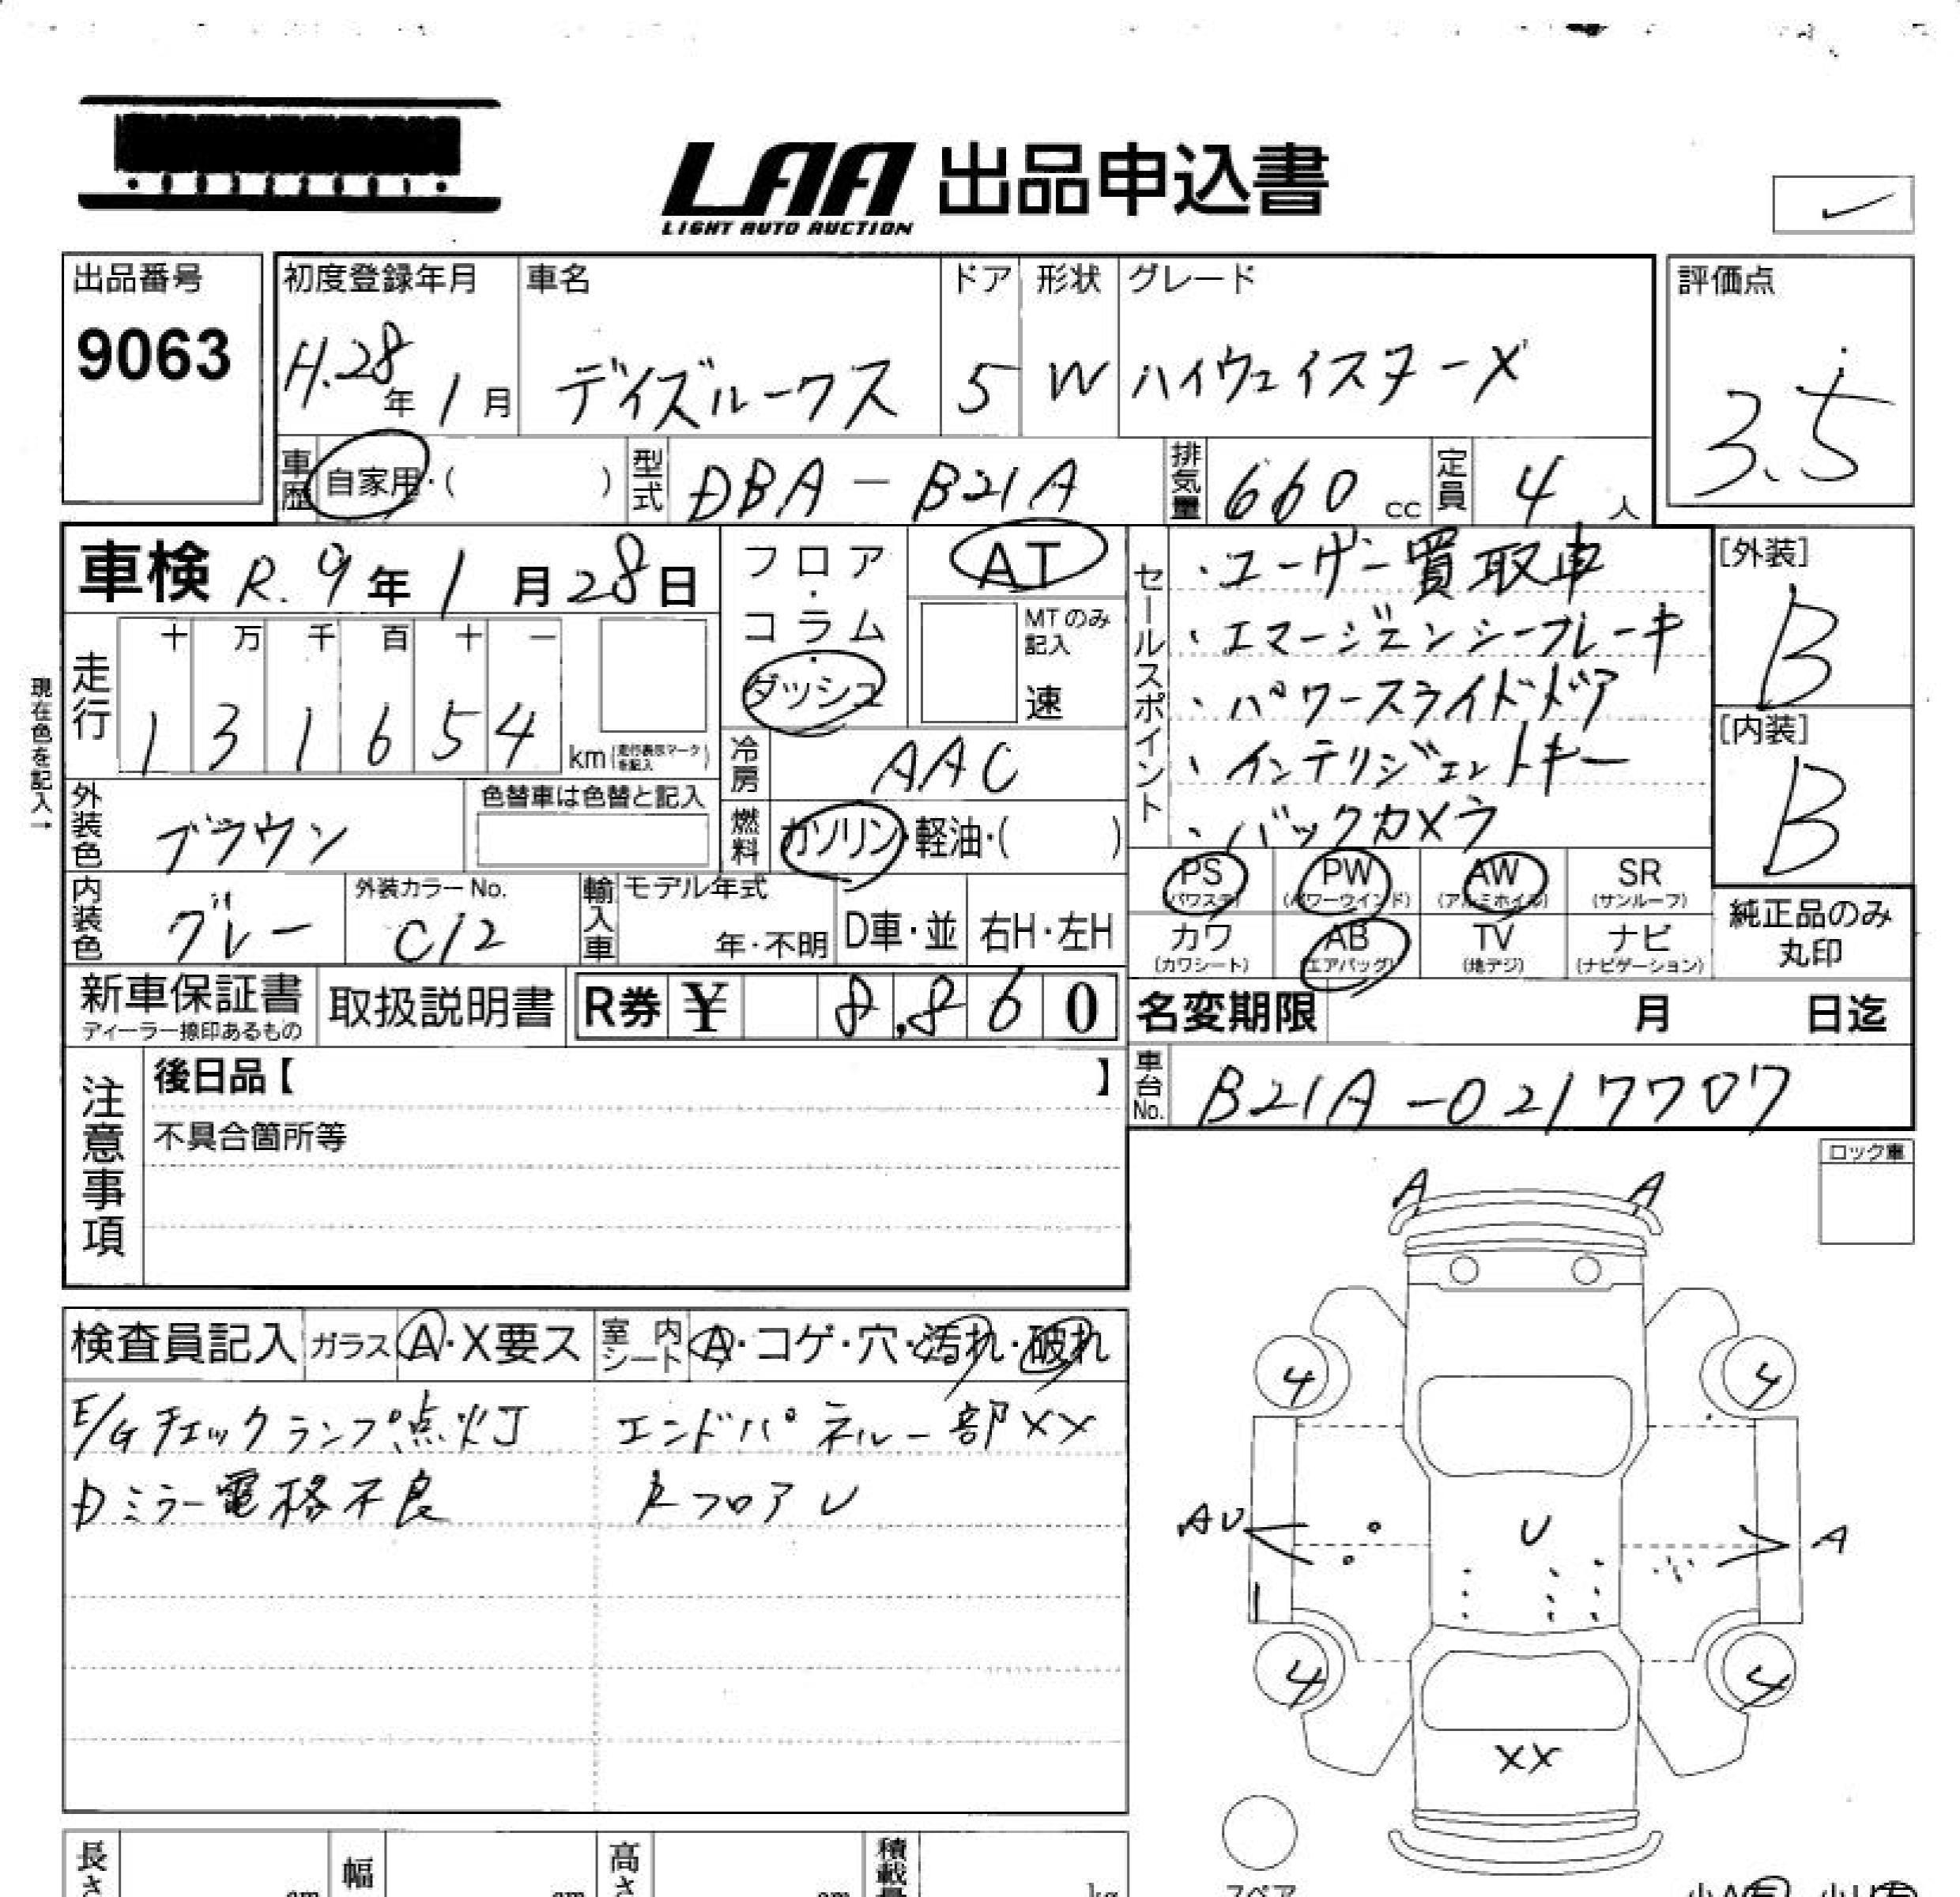 LAA 出品申込書
LIGHT AUTO AUCTION
出品番号
9063
初度登録年月
H.28年1月
車名
デイズルークス
ドア
5
形状
W
グレード
ハイウェイスターX
評価点
3.5
車歴 自家用・( )
型式 DBA-B21A
排気量 660 cc
定員 4 人
車検 R.9年1月28日
フロア・コラム・ダッシュ
AT
MTのみ記入
速
セールスポイント
・ユーザー買取車
・エマージェンシーブレーキ
・パワースライドドア
・インテリジェントキー
・バックカメラ
[外装]
B
[内装]
B
現在色を記入→
走行
十 万 千 百 十 一
1 3 1 6 5 4
km(走行表示マークを記入)
冷房 AAC
外装色 ブラウン
色替車は色替と記入
燃料 ガソリン・軽油・( )
内装色 グレー
外装カラーNo.
C12
輸入車 モデル年式
年・不明
D車・並
右H・左H
PS (パワステ)
PW (パワーウインド)
AW (アルミホイル)
SR (サンルーフ)
カワ (カワシート)
AB (エアバッグ)
TV (地デジ)
ナビ (ナビゲーション)
純正品のみ
丸印
新車保証書
ディーラー捺印あるもの
取扱説明書
R券 ¥ 8,860
名変期限 月 日迄
車台No. B21A-0217707
注意事項
後日品【 】
不具合箇所等
ロック車
検査員記入 ガラス A・X要ス 室内シート A・コゲ・穴・汚れ・破れ
E/Gチェックランプ点灯
Dミラー電格不良
エンドパネル一部XX
Rフロア U
A A
4 4
AU U A
4 4
XX
スペア
長さ cm
幅 cm
高さ cm
積載量 kg